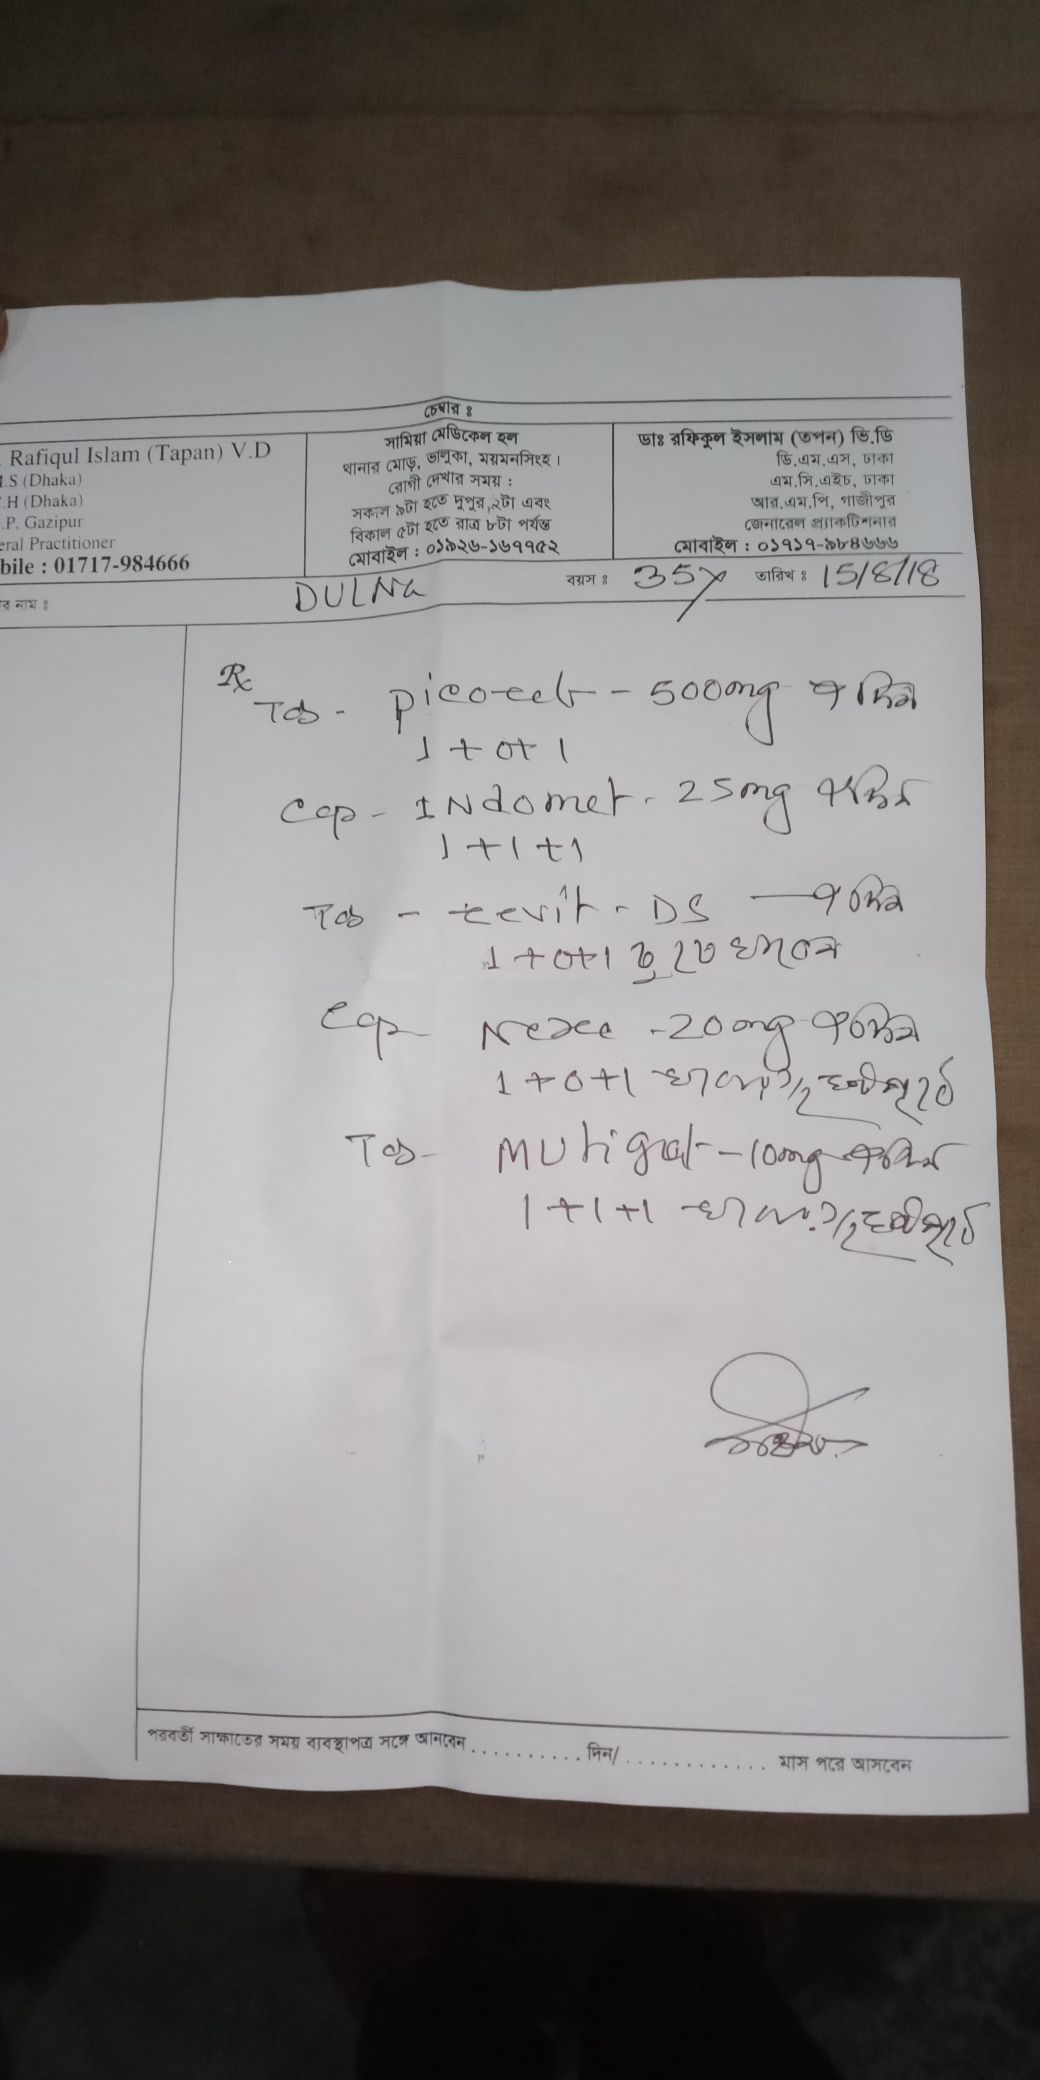 চেম্বার ঃ
Rafiqul Islam (Tapan) V.D
.S (Dhaka)
.H (Dhaka)
.P, Gazipur
eral Practitioner
bile : 01717-984666
সামিয়া মেডিকেল হল
থানার মোড়, ভালুকা, ময়মনসিংহ।
রোগী দেখার সময় :
সকাল ৯টা হতে দুপুর ২টা এবং
বিকাল ৫টা হতে রাত্র ৮টা পর্যন্ত
মোবাইল : ০১৯২৬-১৬৭৭৫২
ডাঃ রফিকুল ইসলাম (তপন) ভি.ডি
ডি.এম.এস, ঢাকা
এম.সি.এইচ, ঢাকা
আর.এম.পি, গাজীপুর
জেনারেল প্র্যাকটিশনার
মোবাইল : ০১৭১৭-৯৮৪৬৬৬
র নাম ঃ DULNA বয়স ঃ 35y তারিখ ঃ 15/8/18
Rx
Tab - - 500mg ৭ দিন
1+0+1
Cap - INdomet - 25mg ৭ দিন
1+1+1
Tab - ceevit - DS — ৭ দিন
1+0+1 চুষে খাবেন
Cap - 20mg
1+0+1
Tab - 10mg
1+1+1
পরবর্তী সাক্ষাতের সময় ব্যবস্থাপত্র সঙ্গে আনবেন .......... দিন/ ............ মাস পরে আসবেন